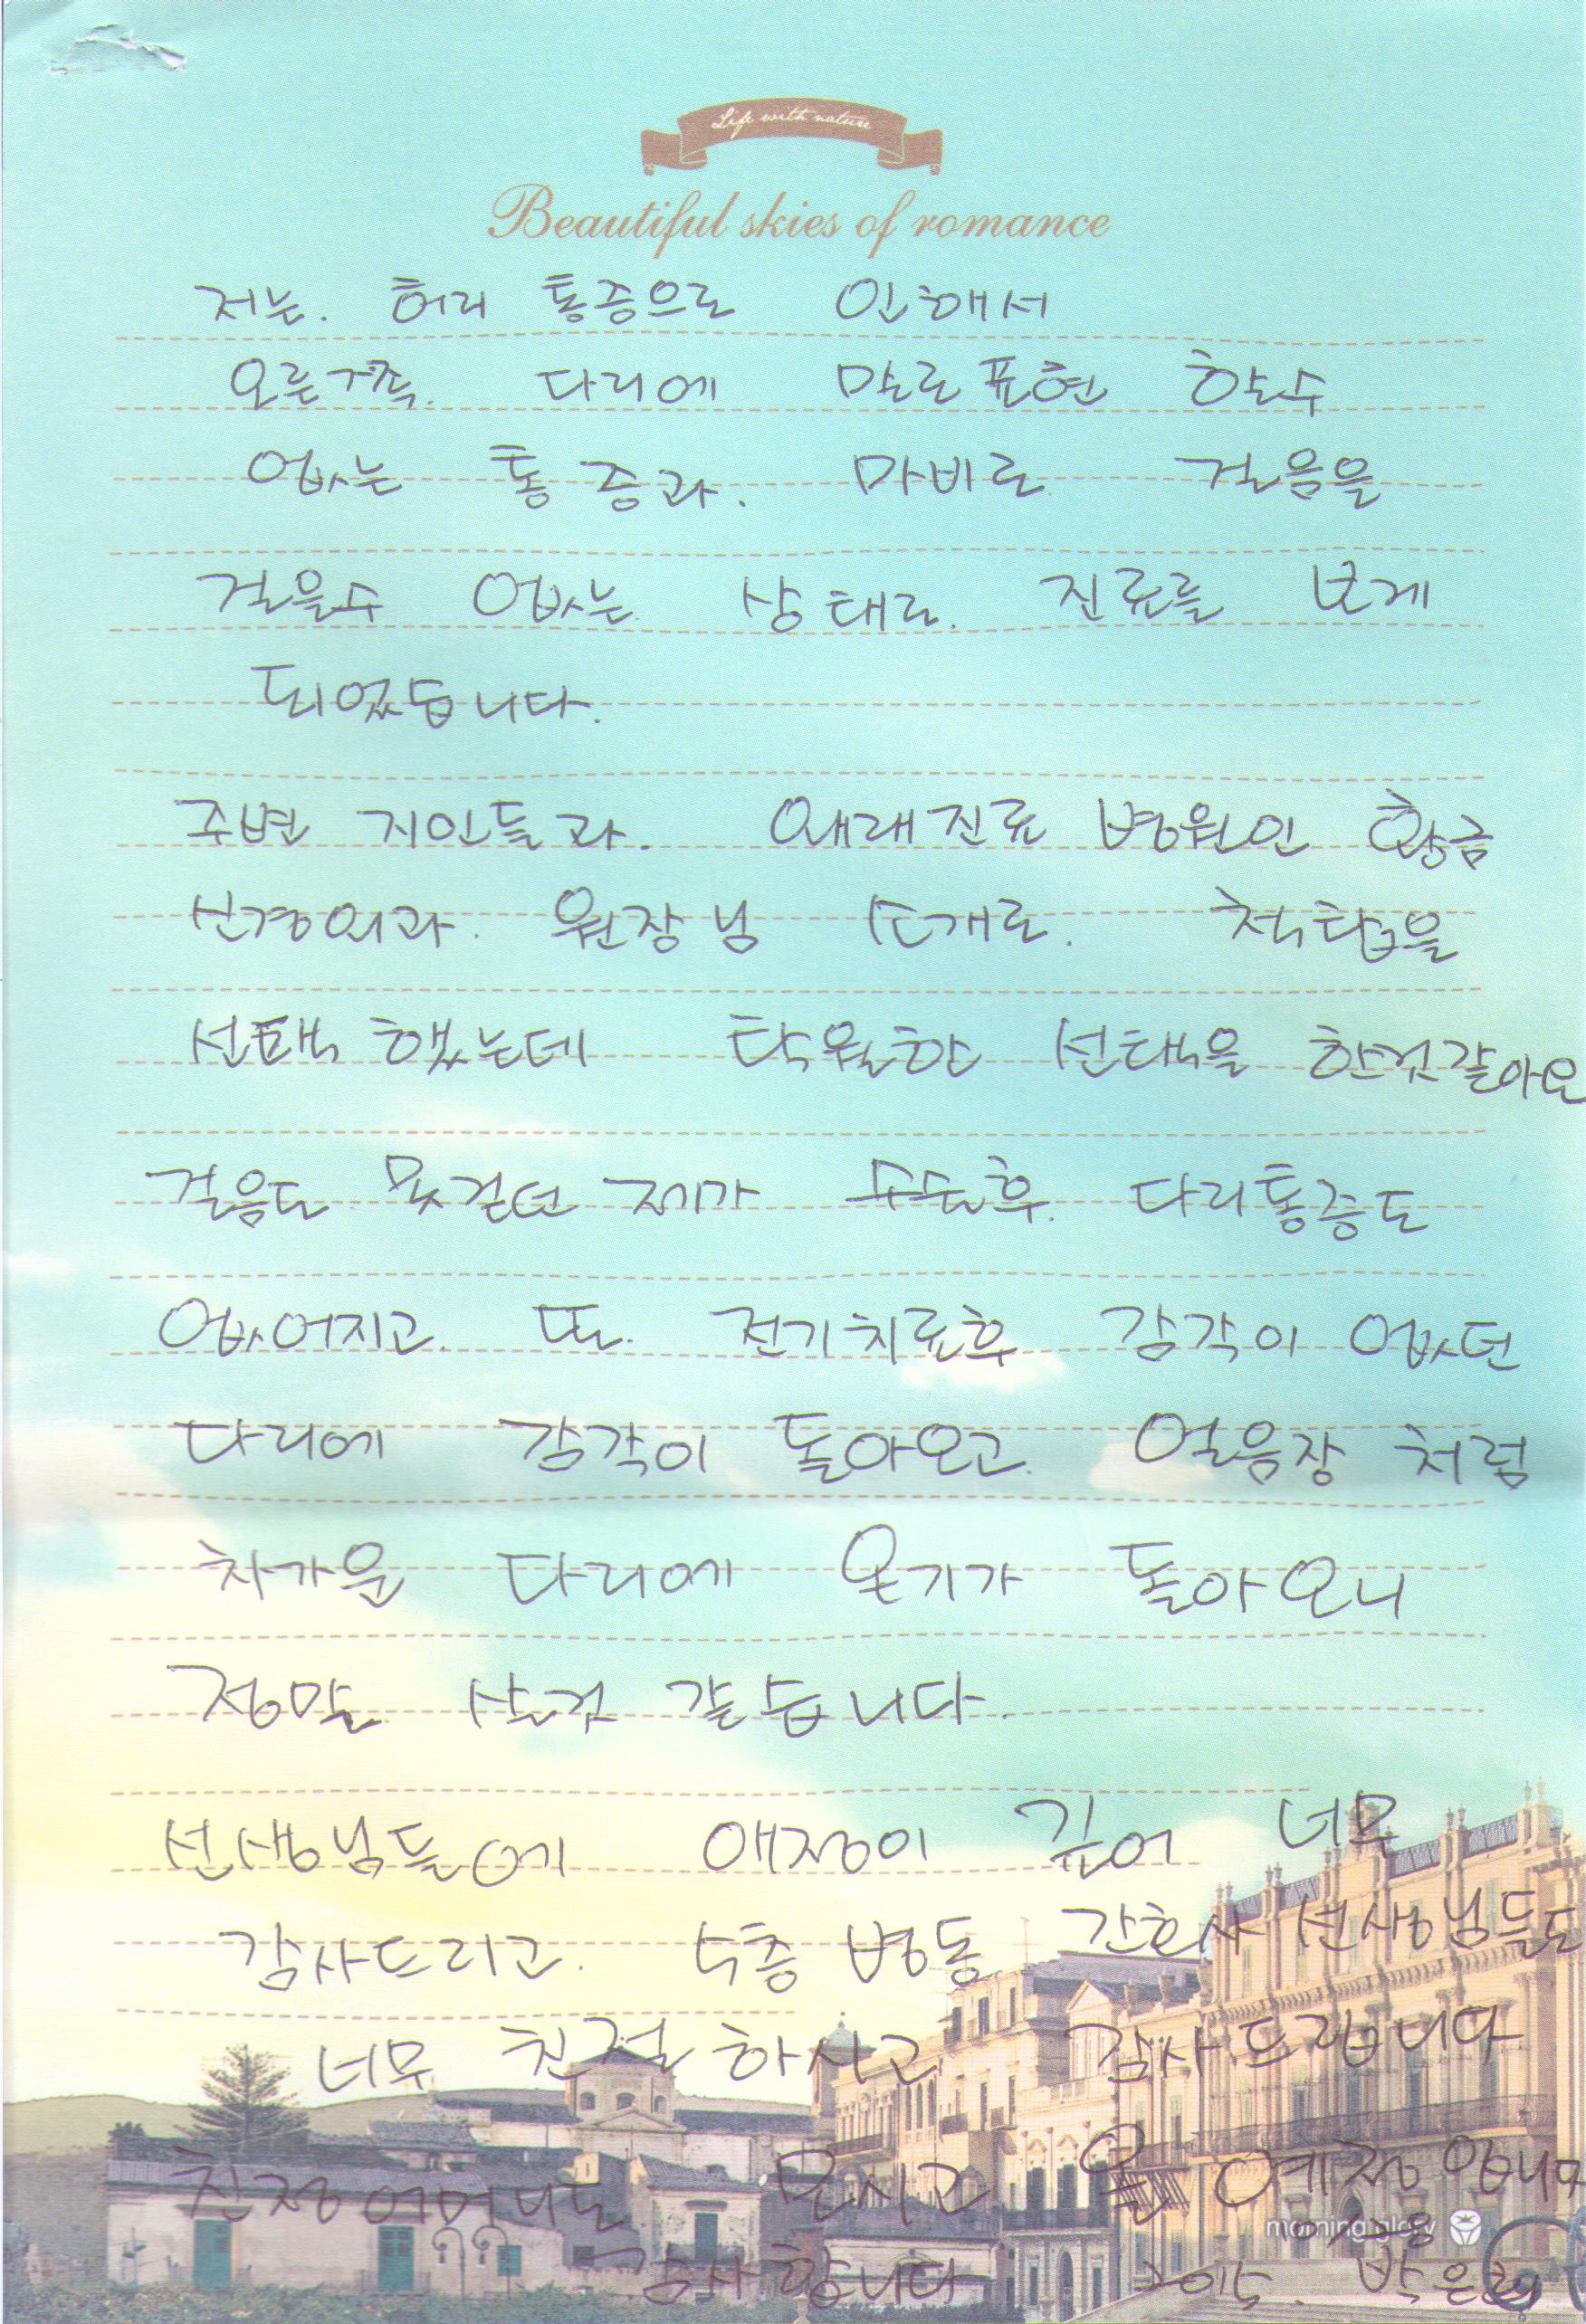 Life with nature
Beautiful skies of romance
저는. 허리 통증으로 인해서
오른쪽. 다리에 말로표현 할수
없는 통증과. 마비로 걸음을
걸을수 없는 상태로. 진료를 보게
되었습니다.
주변 지인들과. 왜래진료 병원인 황금
신경외과. 원장님 소개로. 척탑을
선택 했는데 탁월한 선택을 한것같아요
걸음도 못걷던 제가 수술후. 다리통증도
없어지고. 또. 전기치료후 감각이 없던
다리에 감각이 돌아오고. 얼음장 처럼
차가운 다리에 온기가 돌아오니
정말 살것 같습니다.
선생님들에 애정이 깊어 너무
감사드리고. 5층 병동 간호사 선생님들도
너무 친절 하시고 감사드립니다
친정어머니도 모시고 올 예정 입니다
morning glory
감사합니다